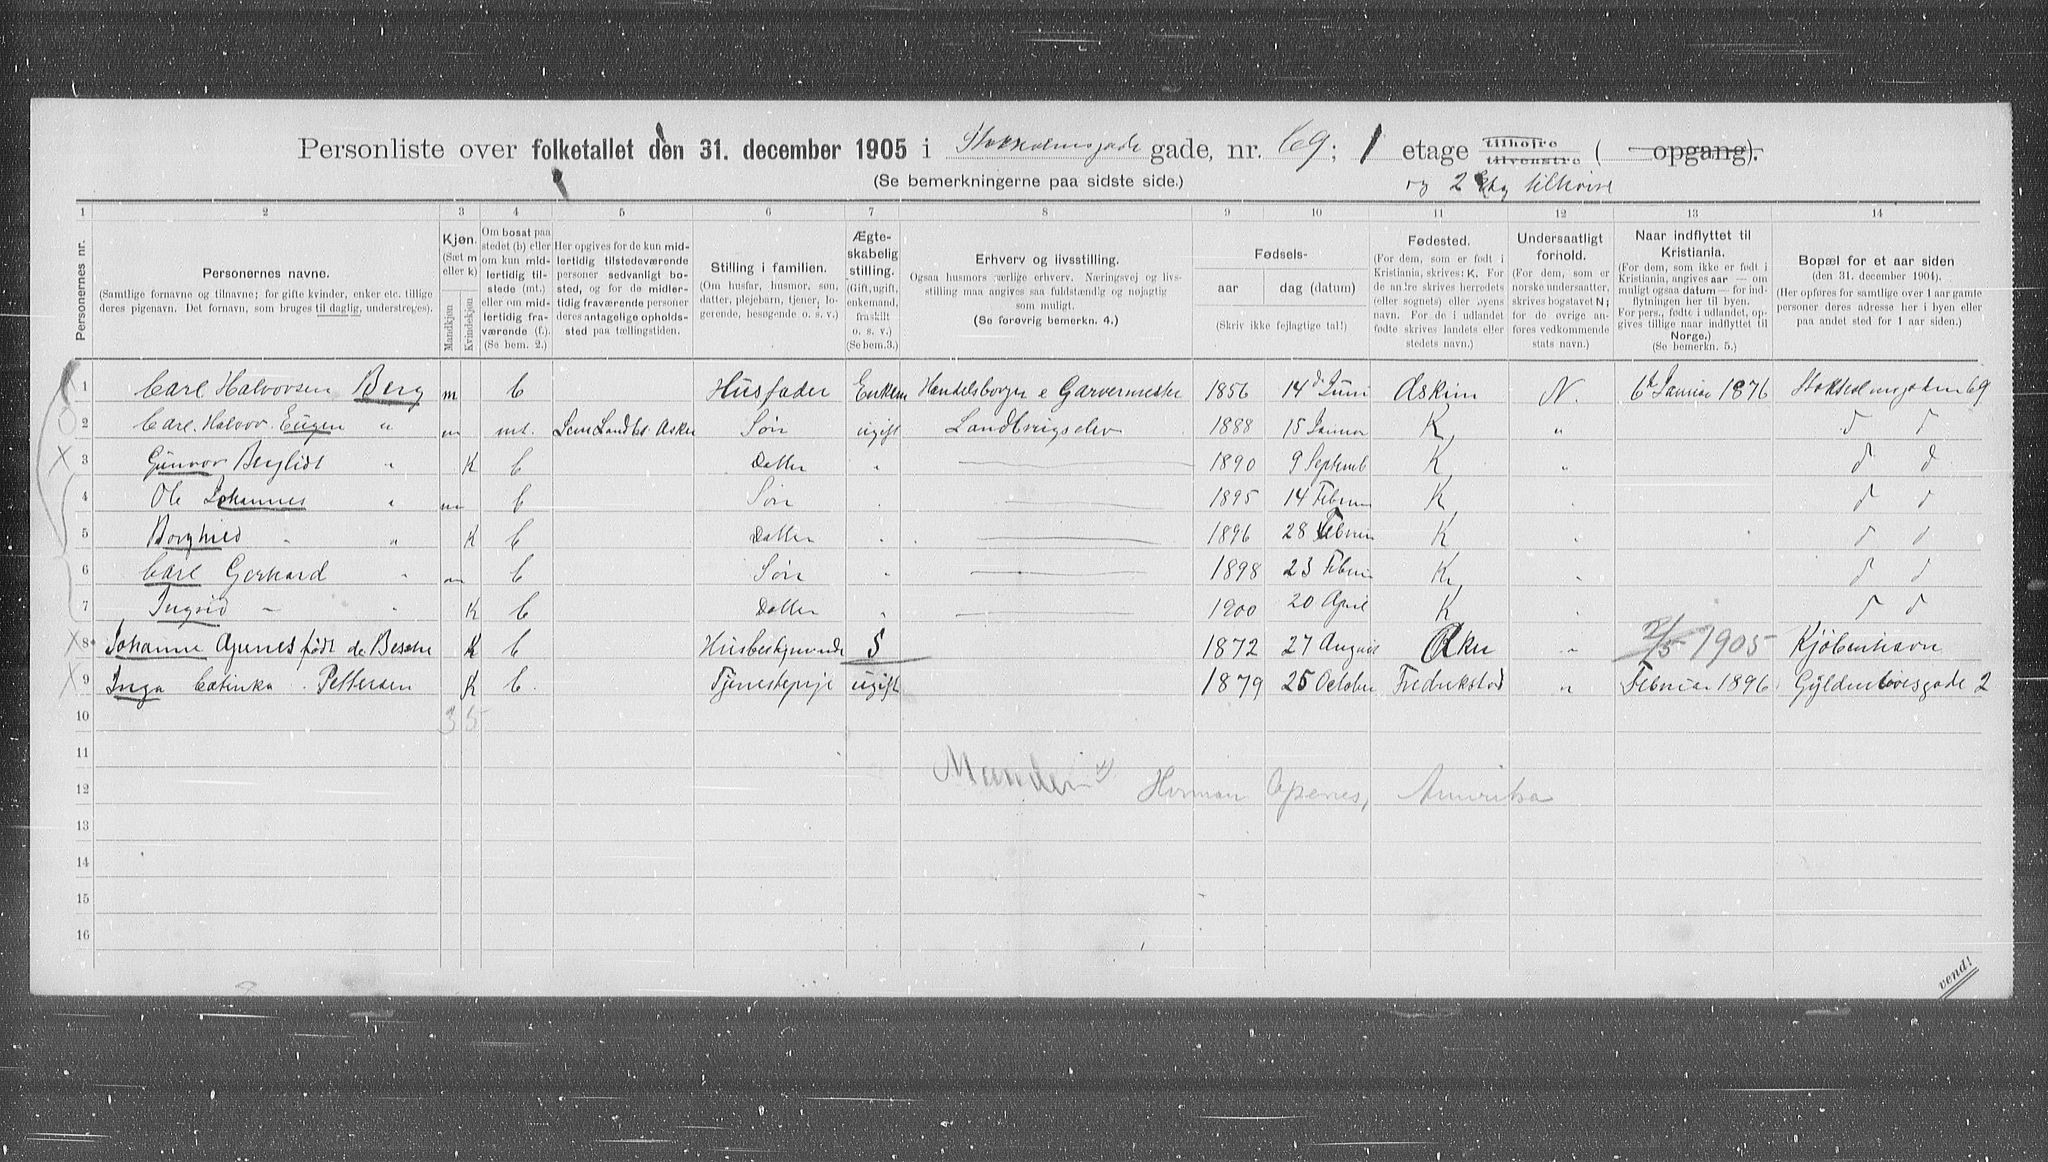 Personliste over folketallet den 31. december 1905 i gade, nr. 69; 1 etage tilhøjre tilvenstre ( opgang).
(Se bemerkningerne paa sidste side.) og 2 tilhøire
1 2 3 4 5 6 7 8 9 10 11 12 13 14
Personernes nr.
Personernes navne.
(Samtlige fornavne og tilnavne; for gifte kvinder, enker etc. tillige deres pigenavn. Det fornavn, som bruges til daglig, understreges).
Kjøn.
(Sæt m eller k)
Mandkjøn Kvindekjøn
Om bosat paa stedet (b) eller om kun midlertidig tilstede (mt.) eller om midlertidig fraværende (f.).
(Se bem. 2.)
Her opgives for de kun midlertidig tilstedeværende personer sedvanligt bosted, og for de midlertidig fraværende personer deres antagelige opholdssted paa tællingstiden.
Stilling i familien.
(Om husfar, husmor, søn, datter, plejebarn, tjener, logerende, besøgende o. s. v.)
Ægteskabelig stilling.
(Gift, ugift, enkemand, fraskilt o. s. v.)
(Se bem.3.)
Erhverv og livsstilling.
Ogsaa husmors særlige erhverv. Næringsvej og livsstilling maa angives saa fuldstændig og nøjagtig som muligt.
(Se forøvrig bemerkn. 4.)
Fødsels-
aar dag (datum)
(Skriv ikke fejlagtige tal!)
Fødested.
(For dem, som er født i Kristiania, skrives: K. For de andre skrives herredets (eller sognets) eller byens navn. For de i udlandet fødte skrives landets eller stedets navn.)
Undersaatligt forhold.
(For dem, som er norske undersaatter, skrives bogstavet N; for de øvrige anføres vedkommende stats navn.)
Naar indflyttet til Kristiania.
(For dem, som ikke er født i Kristiania, angives aar — om mulig ogsaa datum — for indflytningen her til byen. For pers., fødte i udlandet, opgives tillige naar indflyttet til Norge.)
(Se bemerkn. 5.)
Bopæl for et aar siden
(den 31. december 1904).
(Her opføres for samtlige over 1 aar gamle personer deres adresse her i byen eller paa andet sted for 1 aar siden.)
1 Carl Halvorsen Berg m b Husfader Enkem Handelsborger & Garvermester 1856 14 Juni Askim N. 6 Januar 1876 69
2 Carl Halvor Eugen " m mt. Asker Søn ugift Landbrugselev 1888 15 Januar K " d d
3 Gunvor Bergliot " K b Datter " 1890 9 Septemb K " d d
4 Ole Johannes " m b Søn " 1895 14 Februar K " d d
5 Borghild " K b Datter " 1896 28 Februar K " d d
6 Carl Gerhard " m b Søn " 1898 23 Februar K " d d
7 Ingrid " K b Datter " 1900 20 April K " d d
8 Johanne Apenes født de Besche K b Husbestyrerinde S 1872 27 August " 2/5 1905 Kjöbenhavn
9 Inga Catinka Pettersen K b. Tjenestepige ugift 1879 25 October Fredrikstad " Februar 1896 Gyldenløvesgade 2
10 3 5
11
12 Manden Herman Apenes, Amerika
13
14
15
16
vend!